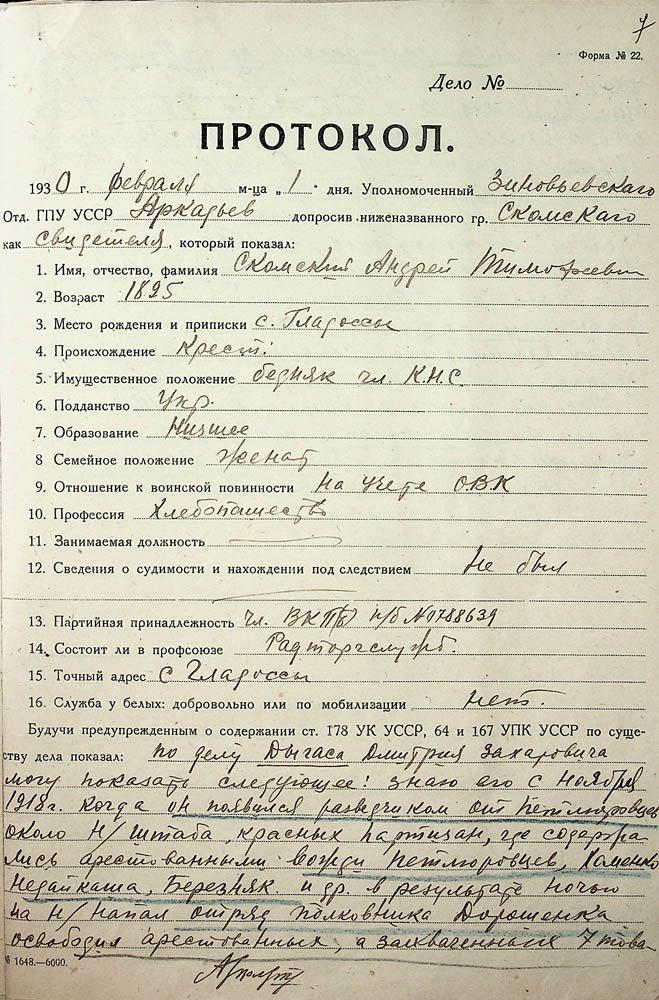 7
Форма № 22.
Дело №
ПРОТОКОЛ.
1930 г. февраля м-ца „1" дня. Уполномоченный Зиновьевского
Отд. ГПУ УССР Аркадьев допросив ниженазванного гр. Скомского
как свидетеля, который показал:
1. Имя, отчество, фамилия Скомский Андрей Тимофеевич
2. Возраст 1895
3. Место рождения и приписки с. Гладоссы
4. Происхождение крест.
5. Имущественное положение бедняк чл. К.Н.С.
6. Подданство Укр.
7. Образование Низшее
8 Семейное положение женат
9. Отношение к воинской повинности на учете ОВК
10. Профессия Хлебопашество
11. Занимаемая должность
12. Сведения о судимости и нахождении под следствием Не был
13. Партийная принадлежность чл. ВКПб п/б №0788639
14. Состоит ли в профсоюзе Радторгслужб.
15. Точный адрес с Гладоссы
16. Служба у белых: добровольно или по мобилизации нет.
Будучи предупрежденным о содержании ст. 178 УК УССР, 64 и 167 УПК УССР по суще-
ству дела показал: по делу Дыгаса Дмитрия Захаровича
могу показать следующее: знаю его с ноября
1918 г. когда он появился разведчиком от петлюровцев
около Н/штаба, красных партизан, где содержа
лись арестованными вожди петлюровцев, Хоменко
Недайкаша, Березняк и др. в результате ночью
на Н/ напал отряд полковника Дорошенка
освободил арестованных, а захваченных 7 това-
№ 1648.—6000.